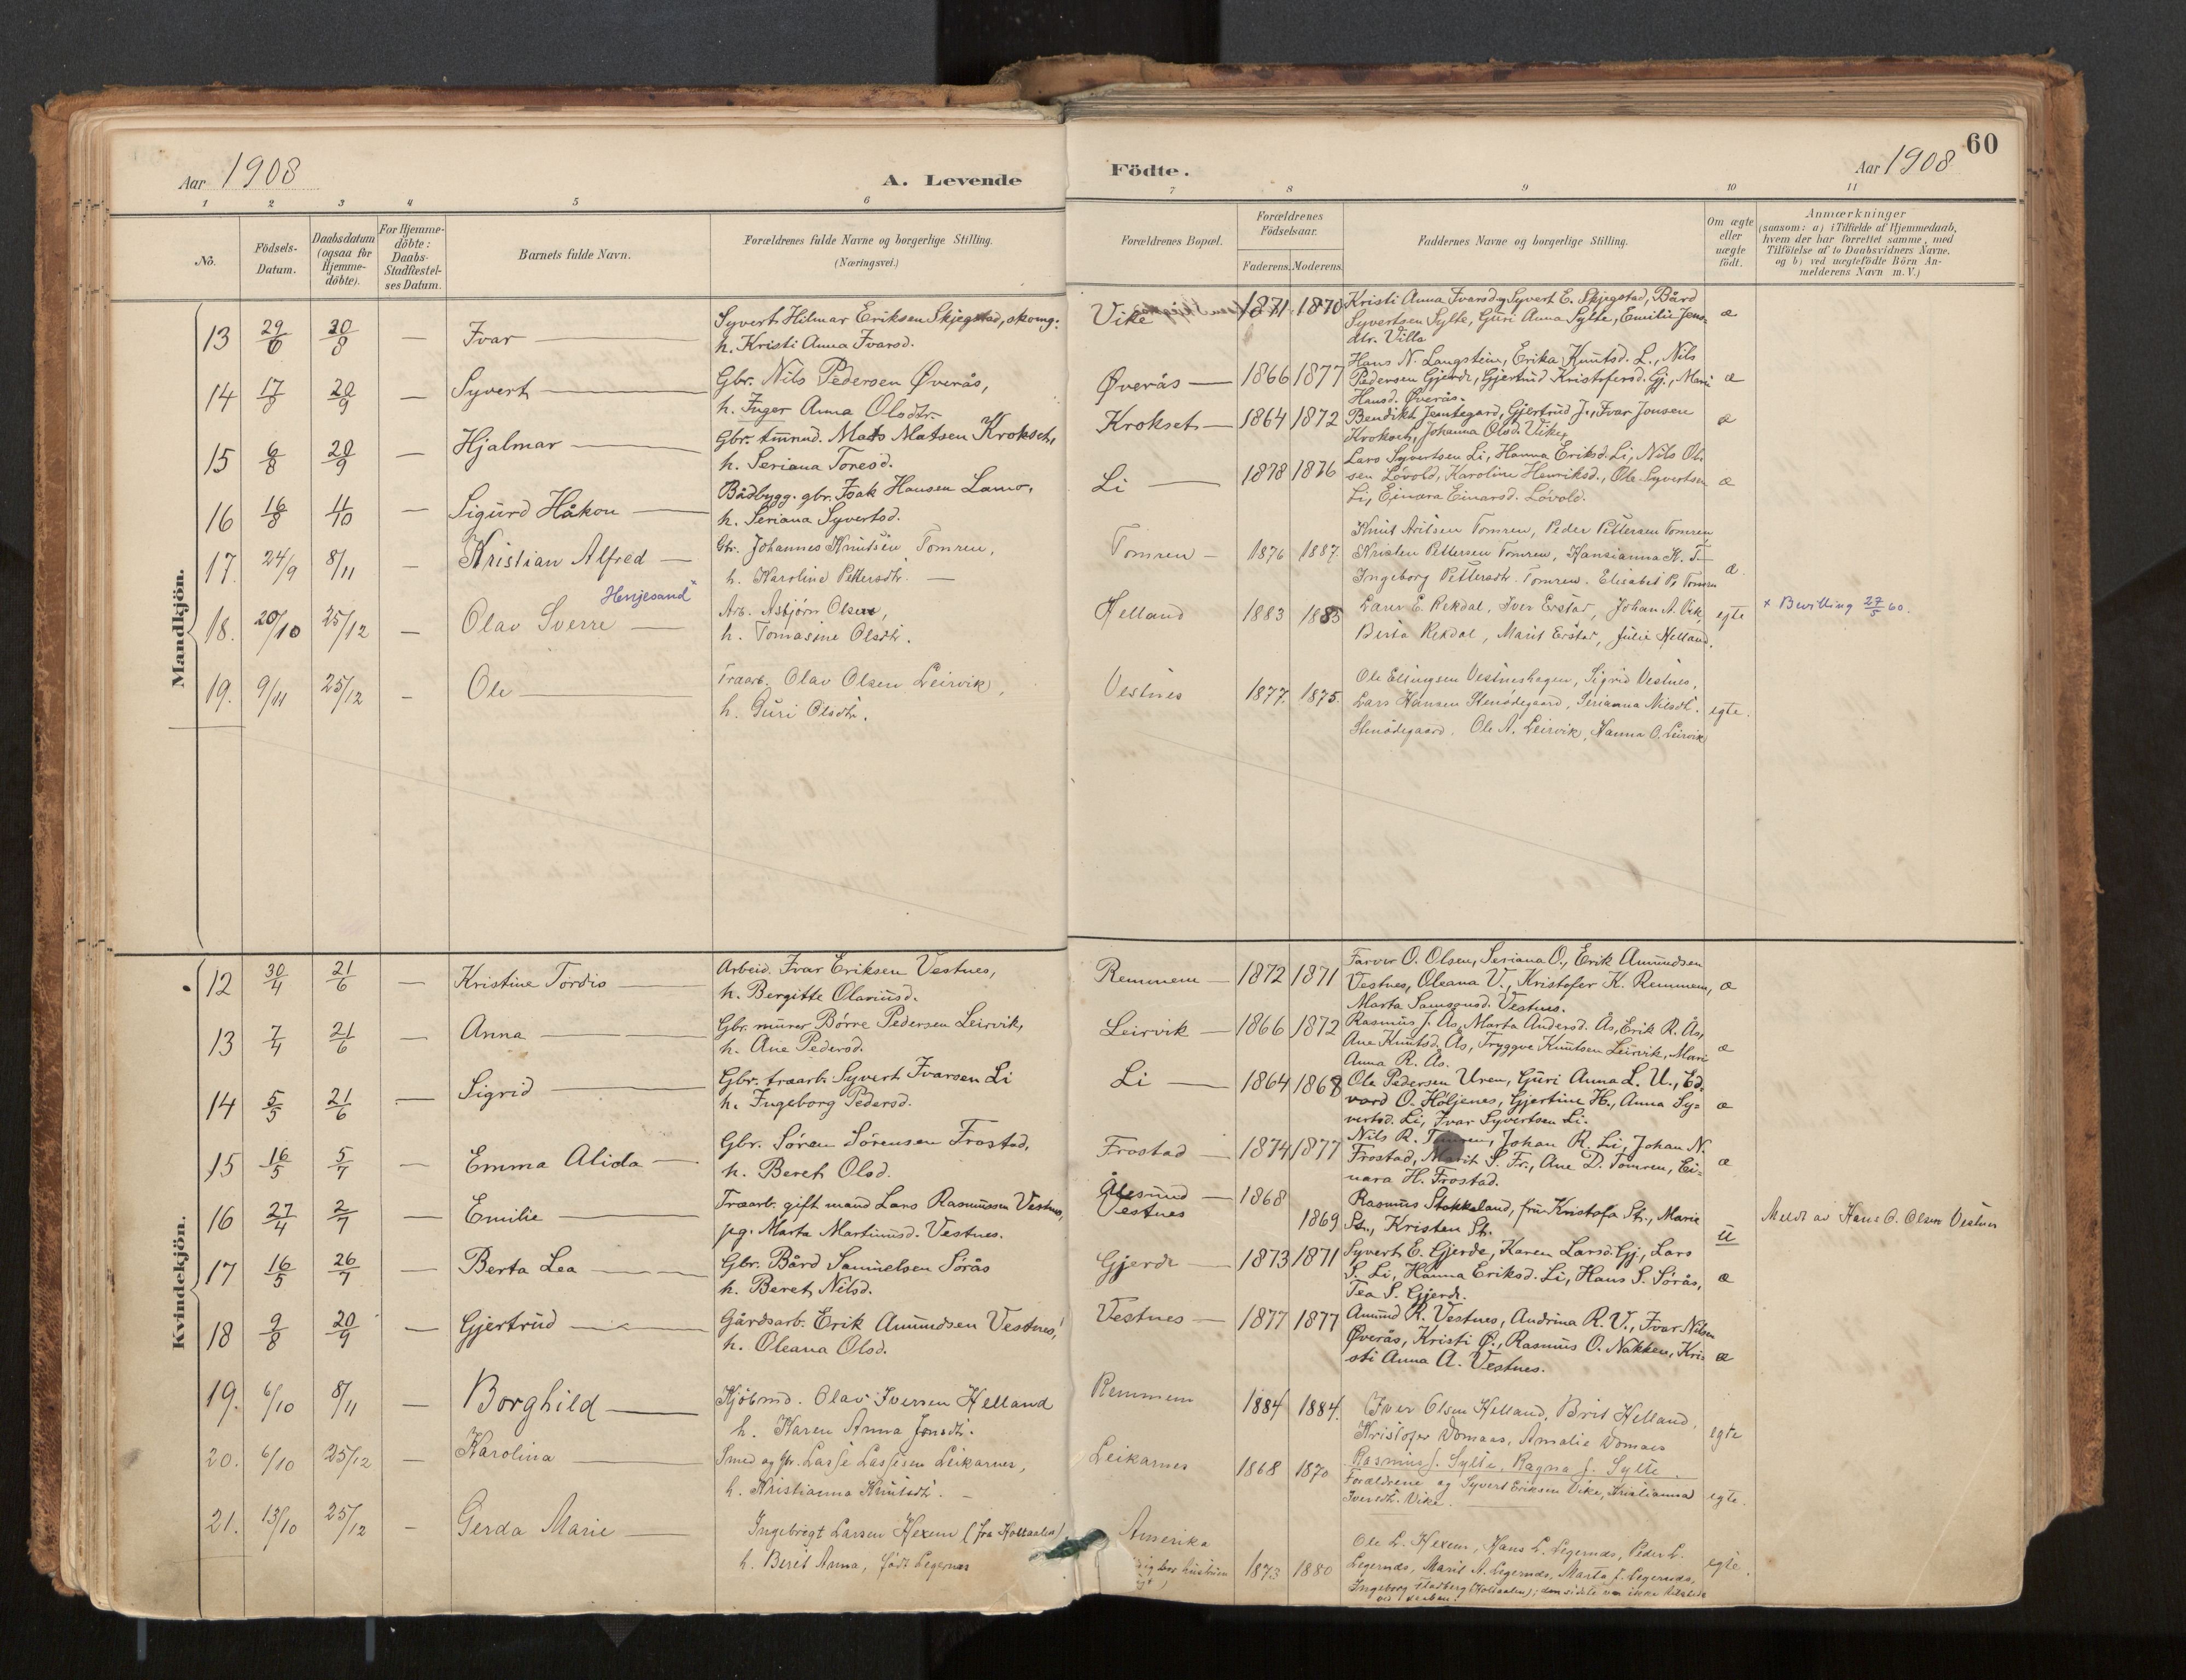 Aar 1908
A. Levende
Födte.
Aar 1908
60
1 2 3 4 5 6 7 8 9 10 11
No.
Födsels-Datum.
Daabsdatum (ogsaa for Hjemme-döbte).
For Hjemme-döbte: Daabs-Stadfestel-ses Datum.
Barnets fulde Navn.
Forældrenes fulde Navne og borgerlige Stilling.
(Næringsvei.)
Forældrenes Bopæl.
Forældrenes Födselsaar.
Faderens. Moderens.
Faddernes Navne og borgerlige Stilling.
Om ægte eller uægte födt.
Anmærkninger
(saasom: a) i Tilfælde af Hjemmedaab, hvem der har forrettet samme, med Tilföielse af to Daabsvidners Navne, og b) ved uægtefödte Börn An-melderens Navn m. V.)
Mandkjön.
13 29/6 30/8 — Ivar —
Syvert Hilmar Eriksen Skjegstad, skomg.
h. Kristi Anna Ivarsd.
Vike 1871 1870
Kristi Anna Ivarsd., Syvert E. Skjegstad, Bård
Syvertsen Sylte, Guri Anna Sylte, Emilie Jens-
dtr. Villa
æ
14 17/8 20/9 — Syvert —
Gbr. Nils Pedersen Øverås,
h. Inger Anna Olsdtr.
Øverås — 1866 1877
Hans N. Langstein, Erika Knutsd. L., Nils
Pedersen Gjerde, Gjertrud Kristofersd. Gj., Marie
Hansd. Øverås.
æ
15 6/8 20/9 — Hjalmar —
Gbr. tmmd. Mats Matsen Krokset,
h. Seriana Toresd.
Krokset — 1864 1872
Bendikt Jemtegard, Gjertrud J., Ivar Jonsen
Krokset, Johanna Olsd. Vike,
æ
16 16/8 4/10 — Sigurd Håkon —
Bådbygg. gbr. Isak Hansen Lamo,
h. Seriana Syvertsd.
Li — 1878 1876
Lars Syvertsen Li, Hanna Eriksd. Li, Nils Ol-
sen Lövold, Karoline Henriksd., Ole Syvertsen
Li, Einara Einarsd. Lövold.
æ
17. 24/9 8/11 — Kristian Alfred —
Gbr. Johannes Knutsen Tomren,
h. Karoline Pettersdtr. —
Tomren — 1876 1887.
Knut Arilsen Tomren, Peder Pettersen Tomren
Kristen Pettersen Tomren, Hansianna K. T—
Ingeborg Pettersdtr. Tomren. Elisabet P. Tomren
æ.
Henjesand x
18. 20/10 25/12 — Olav Sverre —
Arb. Asbjørn Olsen,
h. Tomasine Olsdtr.
Helland 1883 1885
Lars E. Rekdal, Iver Erstar, Johan A. Vik,
Berta Rekdal, Marit Erstar, Julie Helland.
egte
x Bevilling 27/5 60.
19. 9/11 25/12 — Ole —
Træarb. Olav Olsen Leirvik,
h. Guri Olsdtr.
Vestnes 1877. 1875.
Ole Ellingsen Vestneshagen, Sigrid Vestnes,
Lars Hansen Stenödegaard, Serianna Nilsdt.
Stenödegaard. Ole A. Leirvik, Hanna O. Leirvik
egte.
Kvindekjön.
12 30/4 21/6 — Kristine Tordis —
Arbeid. Ivar Eriksen Vestnes,
h. Bergitte Olariusd.
Remmem — 1872 1871
Farver O. Olsen, Seriana O., Erik Amundsen
Vestnes, Oleana V., Kristofer K. Remmem,
Marta Samsonsd. Vestnes.
æ
13 7/4 21/6 — Anna —
Gbr. murer Børre Pedersen Leirvik,
h. Ane Pedersd.
Leirvik — 1866 1872
Rasmus J. Ås, Marta Andersd. Ås, Erik R. Ås,
Ane Knutsd. Ås, Tryggve Knutsen Leirvik, Mari
Anna R. Ås.
æ
14 5/5 21/6 — Sigrid —
Gbr. træarb. Syvert Ivarsen Li
h. Ingeborg Pedersd.
Li — 1864 1868
Ole Pedersen Uren, Guri Anna L. U., Ed-
vard O. Höljenes, Gjertine H., Anna Sy-
vertsd. Li, Ivar Syvertsen Li.
æ
15 16/5 5/7 — Emma Alida —
Gbr. Sören Sörensen Frostad,
h. Beret Olsd.
Frostad — 1874 1877
Nils R. Tomren, Johan R. Li, Johan N.
Frostad, Marit S. Fr., Ane D. Tomren, Ei-
nara H. Frostad.
æ
16 27/4 2/7 — Emilie —
Træarb. gift mand Lars Rasmussen Vestnes,
pg. Marta Martinusd. Vestnes.
Ålesund — 1868
Vestnes 1869
Rasmus Stokkeland, fru Kristofa St., Marie
St., Kristen St.
u
Meldt av Hans O. Olsen Vestnes
17 16/5 26/7 — Berta Lea —
Gbr. Bård Samuelsen Sörås
h. Beret Nilsd.
Gjerde — 1873 1871
Syvert E. Gjerde, Karen Larsd. Gj., Lars
S. Li, Hanna Eriksd. Li, Hans S. Sörås,
Tea S. Gjerde.
æ
18 9/8 20/9 — Gjertrud —
Gårdsarb. Erik Amundsen Vestnes,
h. Oleana Olsd.
Vestnes — 1877 1877
Amund R. Vestnes, Andrina R. V., Ivar Nilsen
Øverås, Kristi Ø., Rasmus O. Nakken, Kri-
sti Anna A. Vestnes.
æ
19. 6/10 8/11 — Borghild —
Kjöbmd. Olav Iversen Helland
h. Karen Anna Jonsdtr.
Remmem 1884 1884.
Iver Olsen Helland, Brit Helland,
Kristofer Vomaas, Amalie Vomaas
egte
20. 6/10 25/12 — Karolina —
Smed og gbr. Lasse Lassesen Leikarnes,
h. Kristianna Knutsdtr. —
Leikarnes 1868 1870
Rasmus J. Sylte, Ragna J. Sylte.
Forældrene og Syvert Eriksen Vike, Kristianna
Iversdtr. Vike.
egte.
21. 13/10 25/12 — Gerda Marie —
Ingebrigt Larsen Hexem (fra Holtaalen)
h. Berit Anna, født Legernes
Amerika
1873 1880
Ole L. Hexem, Hans L. Legernæs, Peder L.
Legernæs, Marit A. Legernæs, Marta J. Legernæs,
Ingeborg Stadberg (Holtaalen); den sidste var ikke tilstede
ved daaben.
egte.